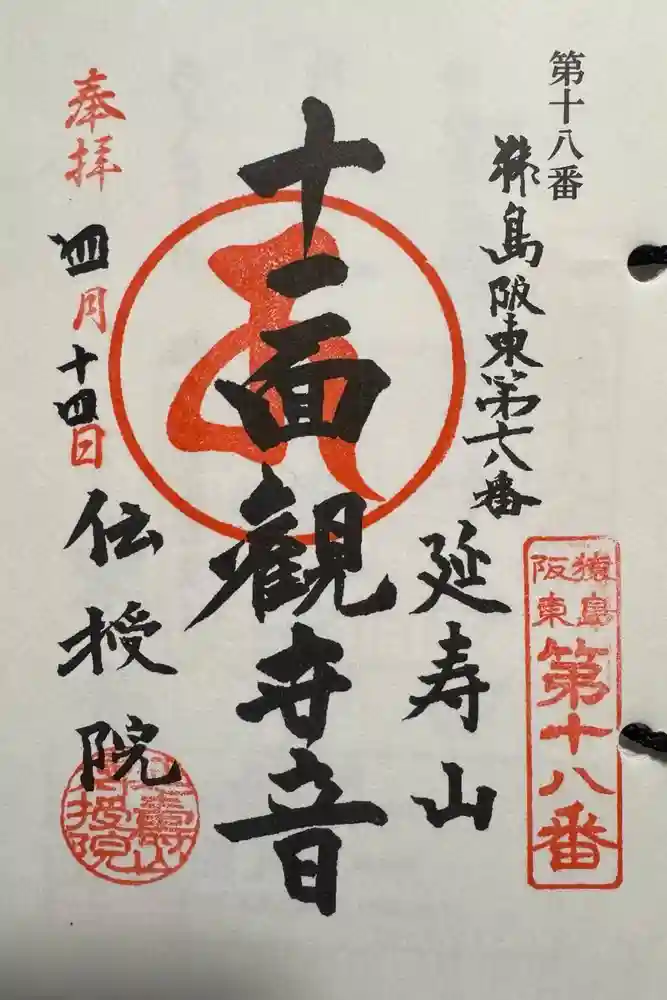 第十八番
猿島阪東第十八番
猿島
阪東
第十八番
延寿山
十一面觀世音
奉拝
四月十四日
伝授院
延壽山
傳授院